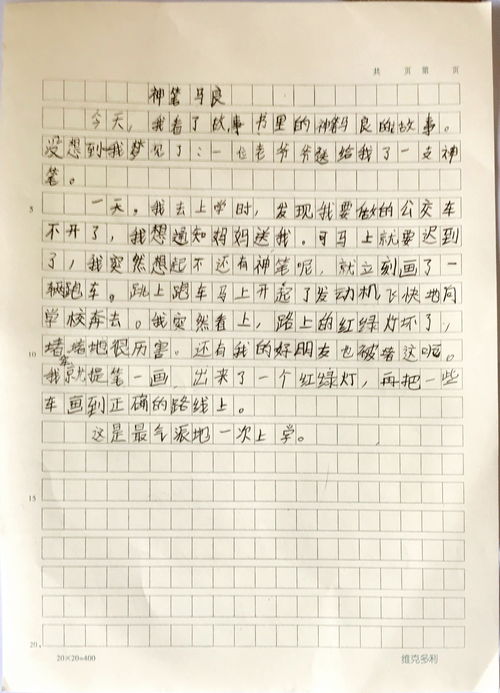 共 页 第 页
神笔马良
今天，我看了故事书里的神笔马良的故事。
没想到我梦见了：一位老爷爷送给我了一支神
笔。
5 一天。我去上学时，发现我要做的公交车
不开了，我想通知妈妈送我。可马上就要迟到
了，我突然想起不还有神笔呢，就立刻画了一
辆跑车。跳上跑车马上开起了发动机飞快地向
学校奔去。我突然看上，路上的红绿灯坏了，
10 堵堵地很历害。还有我的好朋友也被堵这呢。
我就提笔一画，出来了一个红绿灯，再把一些
车画到正确的路线上。
这是最气派地一次上学。
15
20
20×20=400 维克多利